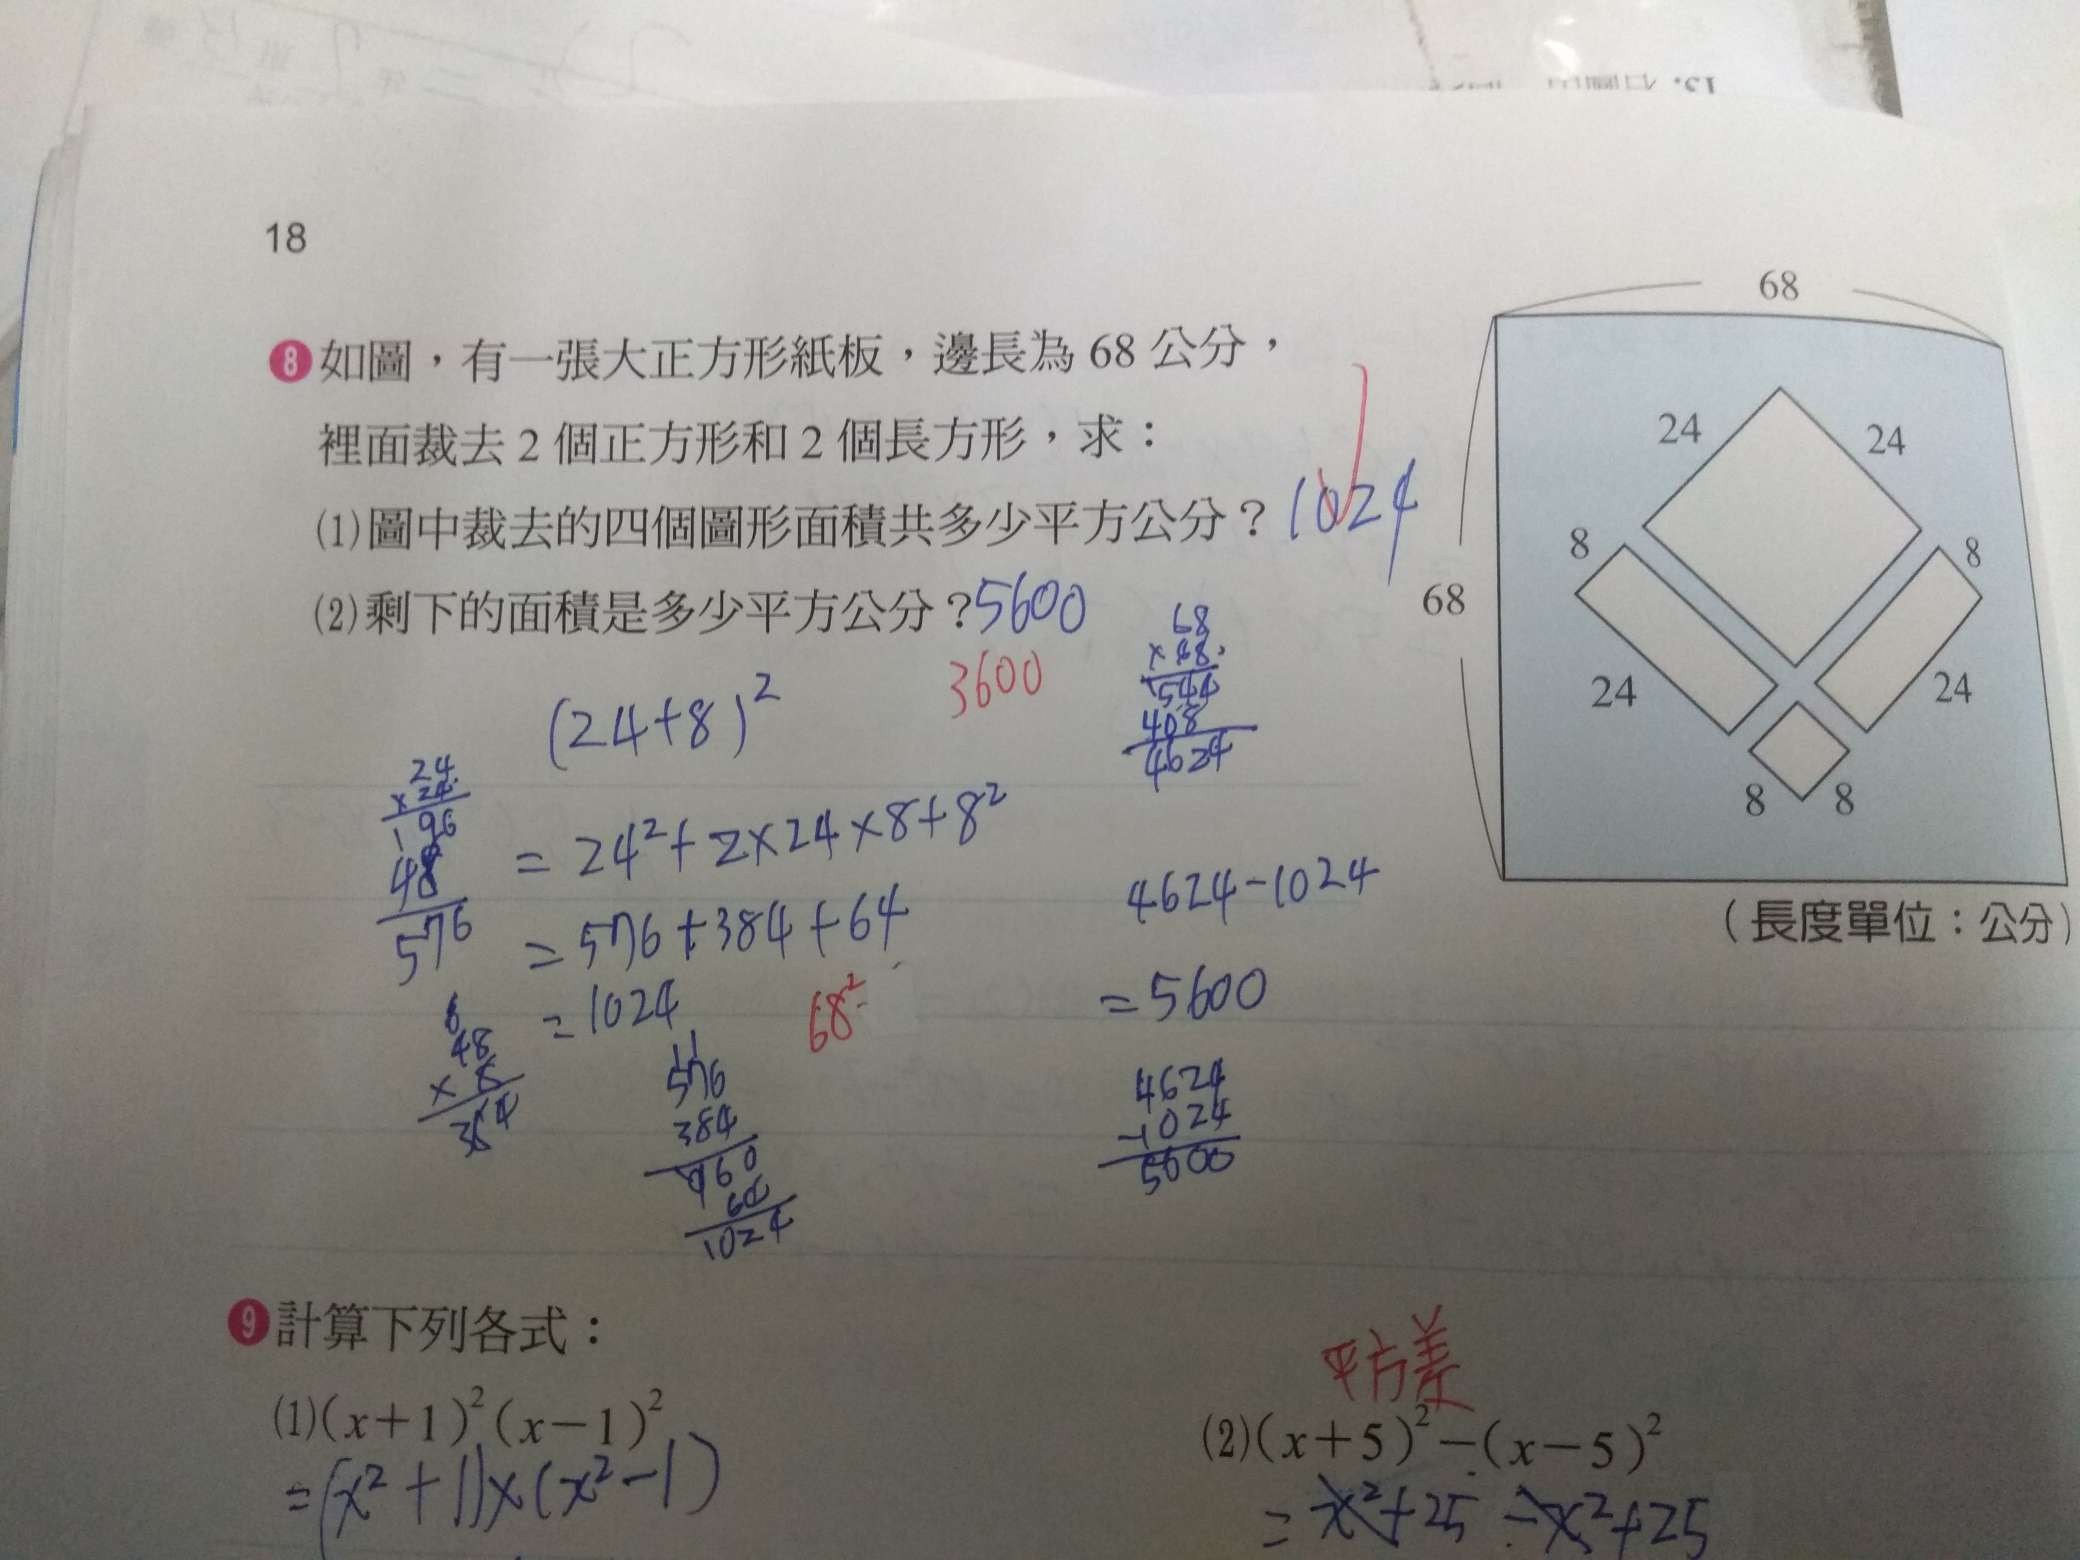 18
8 如圖，有一張大正方形紙板，邊長為 68 公分，
裡面裁去 2 個正方形和 2 個長方形，求：
(1)圖中裁去的四個圖形面積共多少平方公分？ 1024
(2)剩下的面積是多少平方公分？5600
3600
68
68
24
24
8
8
24
24
8
8
(長度單位：公分)
(24+8)²
= 24²+2×24×8+8²
= 576+384+64
= 1024
68²-
24
× 24
196
48
576
6
48
×
384
11
576
384
960
64
1024
68
× 68
544
408
4624
4624-1024
= 5600
4624
-1024
5600
9 計算下列各式：
(1)(x+1)²(x－1)²
= (x²+1)×(x²-1)
平方差
(2)(x+5)²－(x－5)²
= x²+25 - x²+25